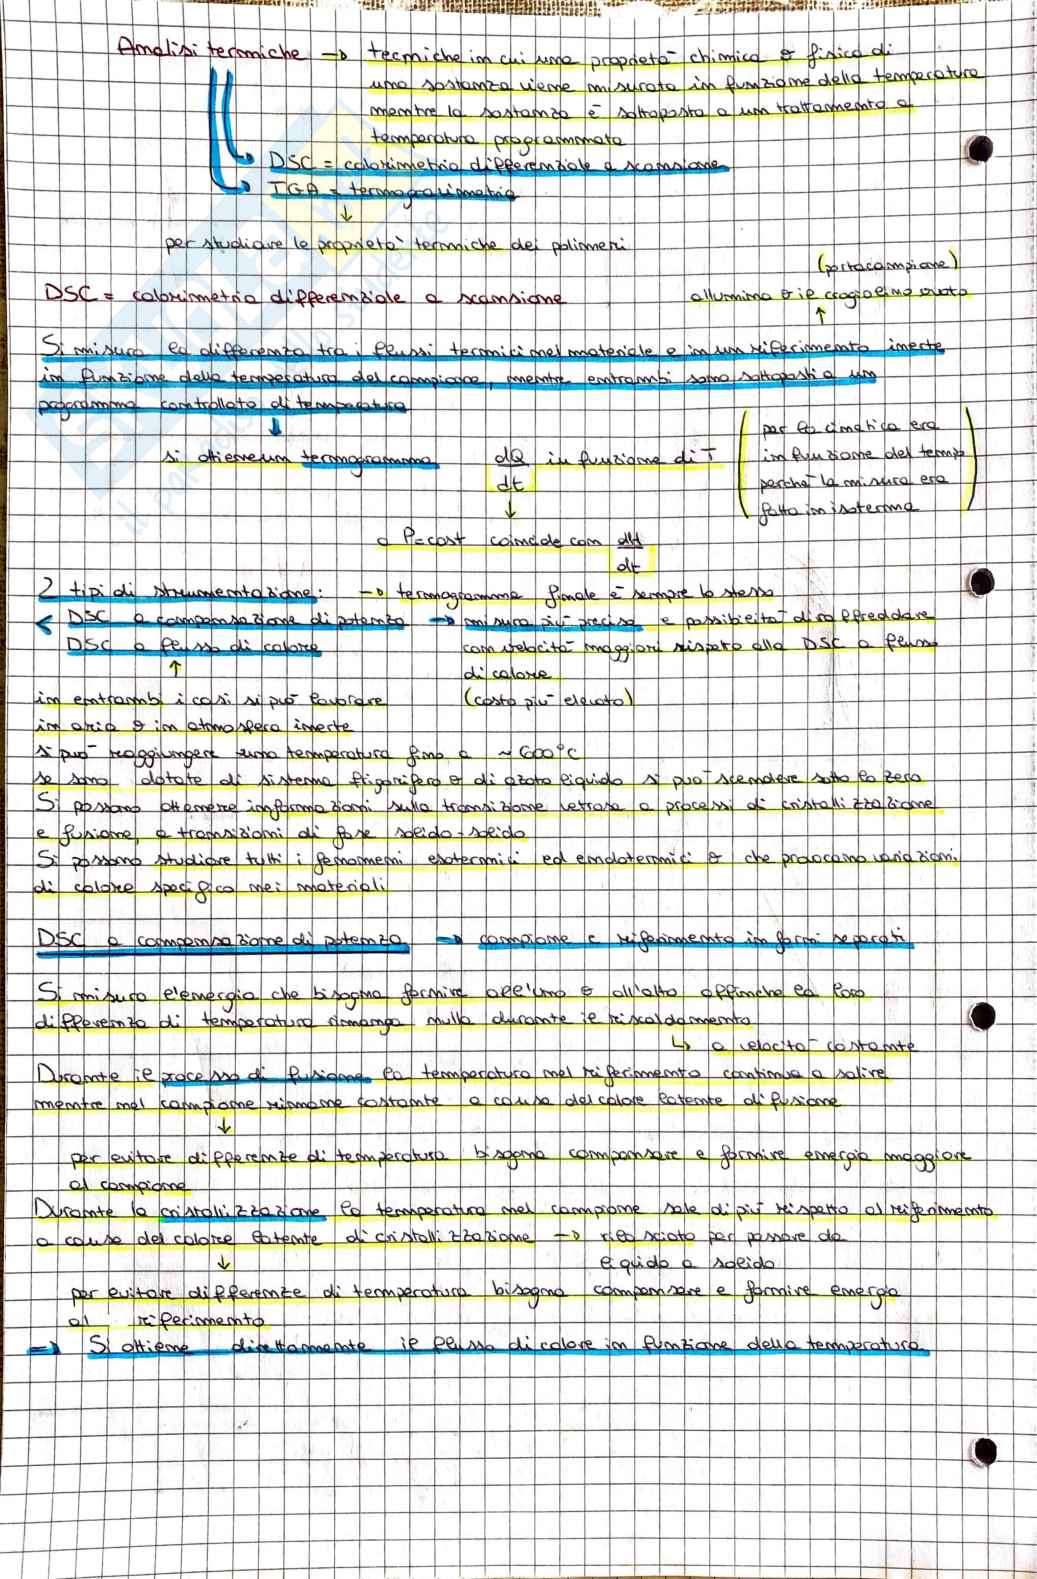 Analisi termiche → tecniche in cui una proprietà chimica o fisica di
una sostanza viene misurata in funzione della temperatura
mentre la sostanza è sottoposta a un trattamento a
temperatura programmata
DSC = calorimetria differenziale a scansione
TGA = termogravimetria
↓
per studiare le proprietà termiche dei polimeri
(portacampione)
DSC = calorimetria differenziale a scansione
allumina o il crogiolino vuoto
↑
Si misura la differenza tra i flussi termici nel materiale e in un riferimento inerte
in funzione della temperatura del campione, mentre entrambi sono sottoposti a un
programma controllato di temperatura
↓
si ottiene un termogramma dQ/dt in funzione di T
(per la cinetica era
in funzione del tempo
perché la misura era
fatta in isoterma)
↓
a P=cost coincide con dH/dt
2 tipi di strumentazione: → termogramma finale è sempre lo stesso
< DSC a compensazione di potenza → misura più precisa e possibilità di raffreddare
DSC a flusso di calore con velocità maggiori rispetto alla DSC a flusso
↑ di calore
in entrambi i casi si può lavorare (costo più elevato)
in aria o in atmosfera inerte
si può raggiungere una temperatura fino a ~600°C
se sono dotate di sistema frigorifero o di azoto liquido si può scendere sotto lo zero
Si possono ottenere informazioni sulla transizione vetrosa a processi di cristallizzazione
e fusione, a transizioni di fase solido-solido
Si possono studiare tutti i fenomeni esotermici ed endotermici o che provocano variazioni
di calore specifico nei materiali
DSC a compensazione di potenza → campione e riferimento in forni separati
Si misura l'energia che bisogna fornire all'uno o all'alto affinché la loro
differenza di temperatura rimanga nulla durante il riscaldamento
↳ a velocità costante
Durante il processo di fusione la temperatura nel riferimento continua a salire
mentre nel campione rimane costante a causa del calore latente di fusione
↓
per evitare differenze di temperatura bisogna compensare e fornire energia maggiore
al campione
Durante la cristallizzazione la temperatura nel campione sale di più rispetto al riferimento
a causa del calore latente di cristallizzazione → rilasciato per passare da
↓ liquido a solido
per evitare differenze di temperatura bisogna compensare e fornire energia
al riferimento
⇒ Si ottiene direttamente il flusso di calore in funzione della temperatura